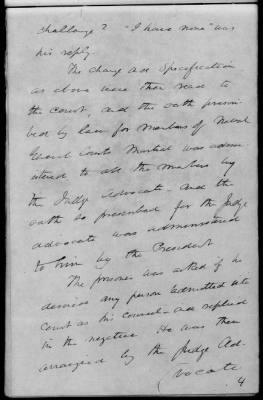 challange? "I have none" was
his reply.
The charge and Specification
as above were then read to
the court and the oath prescri-
bed by law for members of Naval
General Courts Martial was admin-
istered to all the members by
the Judge Advocate - and the
oath as prescribed for the Judge
advocate was administered
to him by the President
The prisoner was asked if he
desired any person admitted into
court as his counsel - and replied
in the negative. He was then
arraigned by the Judge Ad-
(vocate
4